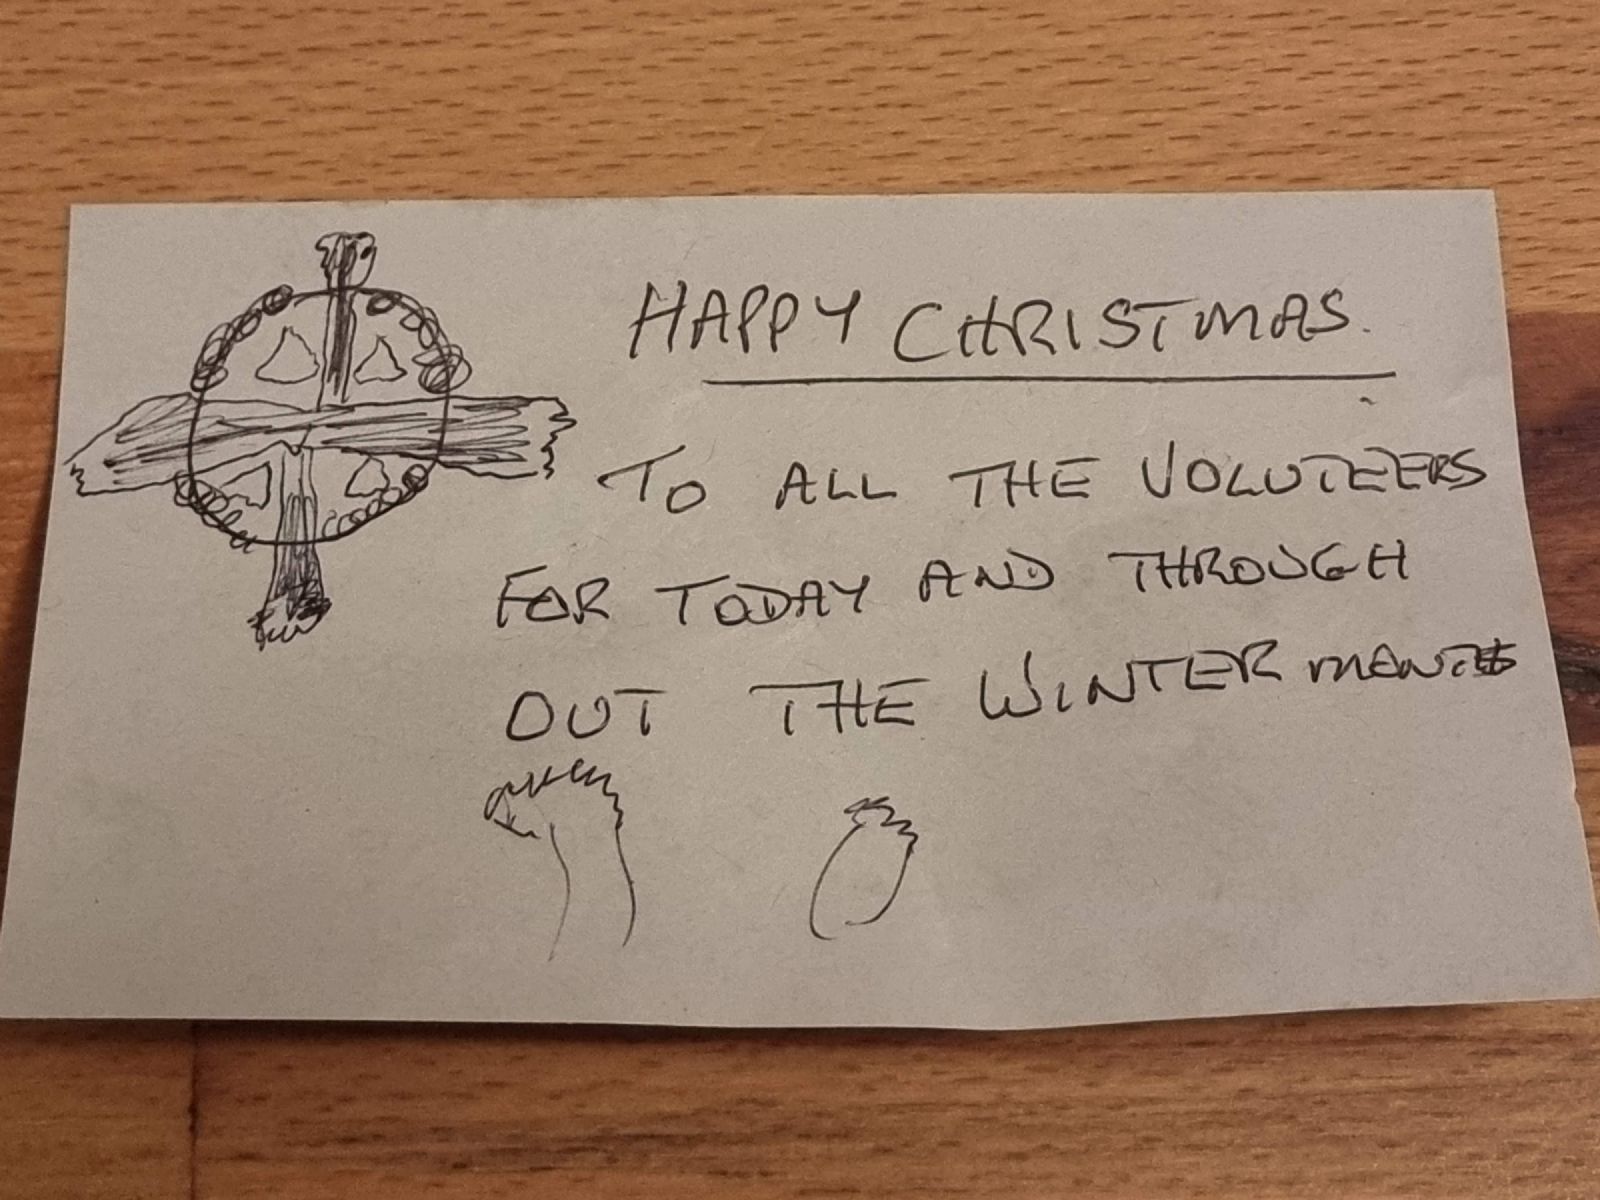 HAPPY CHRISTMAS.
TO ALL THE VOLUTEERS
FOR TODAY AND THROUGH
OUT THE WINTER MONTHS